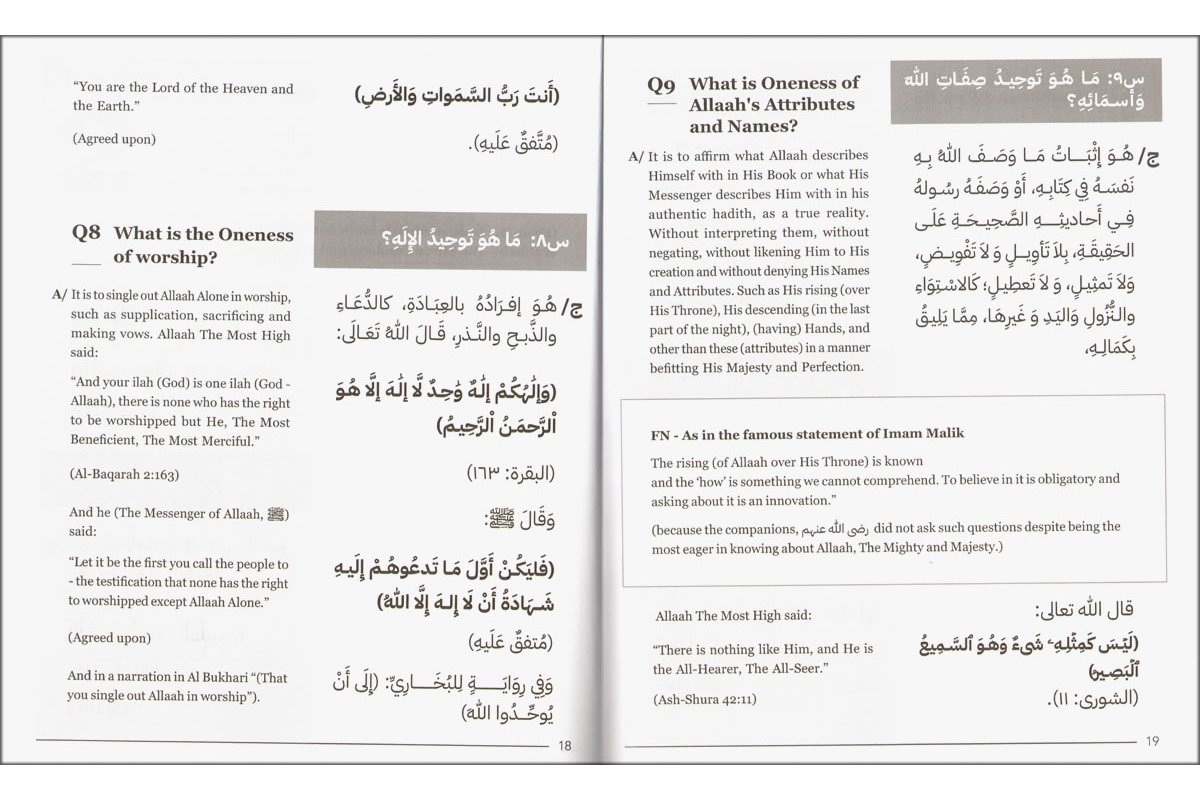 “You are the Lord of the Heaven and
the Earth.”
(Agreed upon)
(أَنتَ رَبُّ السَّمَواتِ وَالأَرضِ)
(مُتَّفقٌ عَلَيهِ).
Q8 What is the Oneness
of worship?
س٨: مَا هُوَ تَوحِيدُ الإِلَهِ؟
A/ It is to single out Allaah Alone in worship,
such as supplication, sacrificing and
making vows. Allaah The Most High
said:
“And your ilah (God) is one ilah (God -
Allaah), there is none who has the right
to be worshipped but He, The Most
Beneficient, The Most Merciful.”
(Al-Baqarah 2:163)
And he (The Messenger of Allaah, ﷺ)
said:
“Let it be the first you call the people to
- the testification that none has the right
to worshipped except Allaah Alone.”
(Agreed upon)
And in a narration in Al Bukhari “(That
you single out Allaah in worship”).
ج/ هُوَ إفرَادُهُ بالعِبَادَةِ، كالدُّعَاءِ
والذَّبحِ والنَّذرِ، قَالَ اللهُ تَعَالَى:
(وَإِلَٰهُكُمْ إِلَٰهٌ وَٰحِدٌ لَّا إِلَٰهَ إِلَّا هُوَ
اْلرَّحمَنُ اْلرَّحِيمُ)
(البقرة: ١٦٣)
وَقَالَ ﷺ:
(فَليَكُنْ أَوَّلَ مَا تَدعُوهُمْ إِلَيهِ
شَهَادَةُ أَنْ لَا إِلهَ إِلَّا اللهُ)
(مُتفقٌ عَلَيهِ)
وَفِي رِوَايَةٍ لِلبُخَارِيِّ: (إِلَى أَنْ
يُوحِّدُوا اللهَ)
18
Q9 What is Oneness of
Allaah's Attributes
and Names?
س٩: مَا هُوَ تَوحِيدُ صِفَاتِ اللهِ
وَأَسمَائِهِ؟
A/ It is to affirm what Allaah describes
Himself with in His Book or what His
Messenger describes Him with in his
authentic hadith, as a true reality.
Without interpreting them, without
negating, without likening Him to His
creation and without denying His Names
and Attributes. Such as His rising (over
His Throne), His descending (in the last
part of the night), (having) Hands, and
other than these (attributes) in a manner
befitting His Majesty and Perfection.
ج/ هُوَ إِثْبَاتُ مَا وَصَفَ اللهُ بِهِ
نَفسَهُ فِي كِتَابِهِ، أَوْ وَصَفَهُ رسُولهُ
فِي أَحاديثِهِ الصَّحِيحَةِ عَلَى
الحَقِيقَةِ، بِلاَ تَأوِيلٍ وَ لاَ تَفْوِيضٍ،
وَلاَ تَمثِيلٍ، وَ لاَ تَعطِيلٍ؛ كَالاسْتِوَاءِ
والنُّزُولِ وَاليَدِ وَ غَيرِهَا، مِمَّا يَلِيقُ
بِكَمَالِهِ،
FN - As in the famous statement of Imam Malik
The rising (of Allaah over His Throne) is known
and the ‘how’ is something we cannot comprehend. To believe in it is obligatory and
asking about it is an innovation.”
(because the companions, رضي الله عنهم did not ask such questions despite being the
most eager in knowing about Allaah, The Mighty and Majesty.)
Allaah The Most High said:
“There is nothing like Him, and He is
the All-Hearer, The All-Seer.”
(Ash-Shura 42:11)
قال الله تعالى:
(لَيْسَ كَمِثْلِهِۦ شَىءٌ وَهُوَ ٱلسَّمِيعُ
ٱلْبَصِيرُ)
(الشورى: ١١).
19